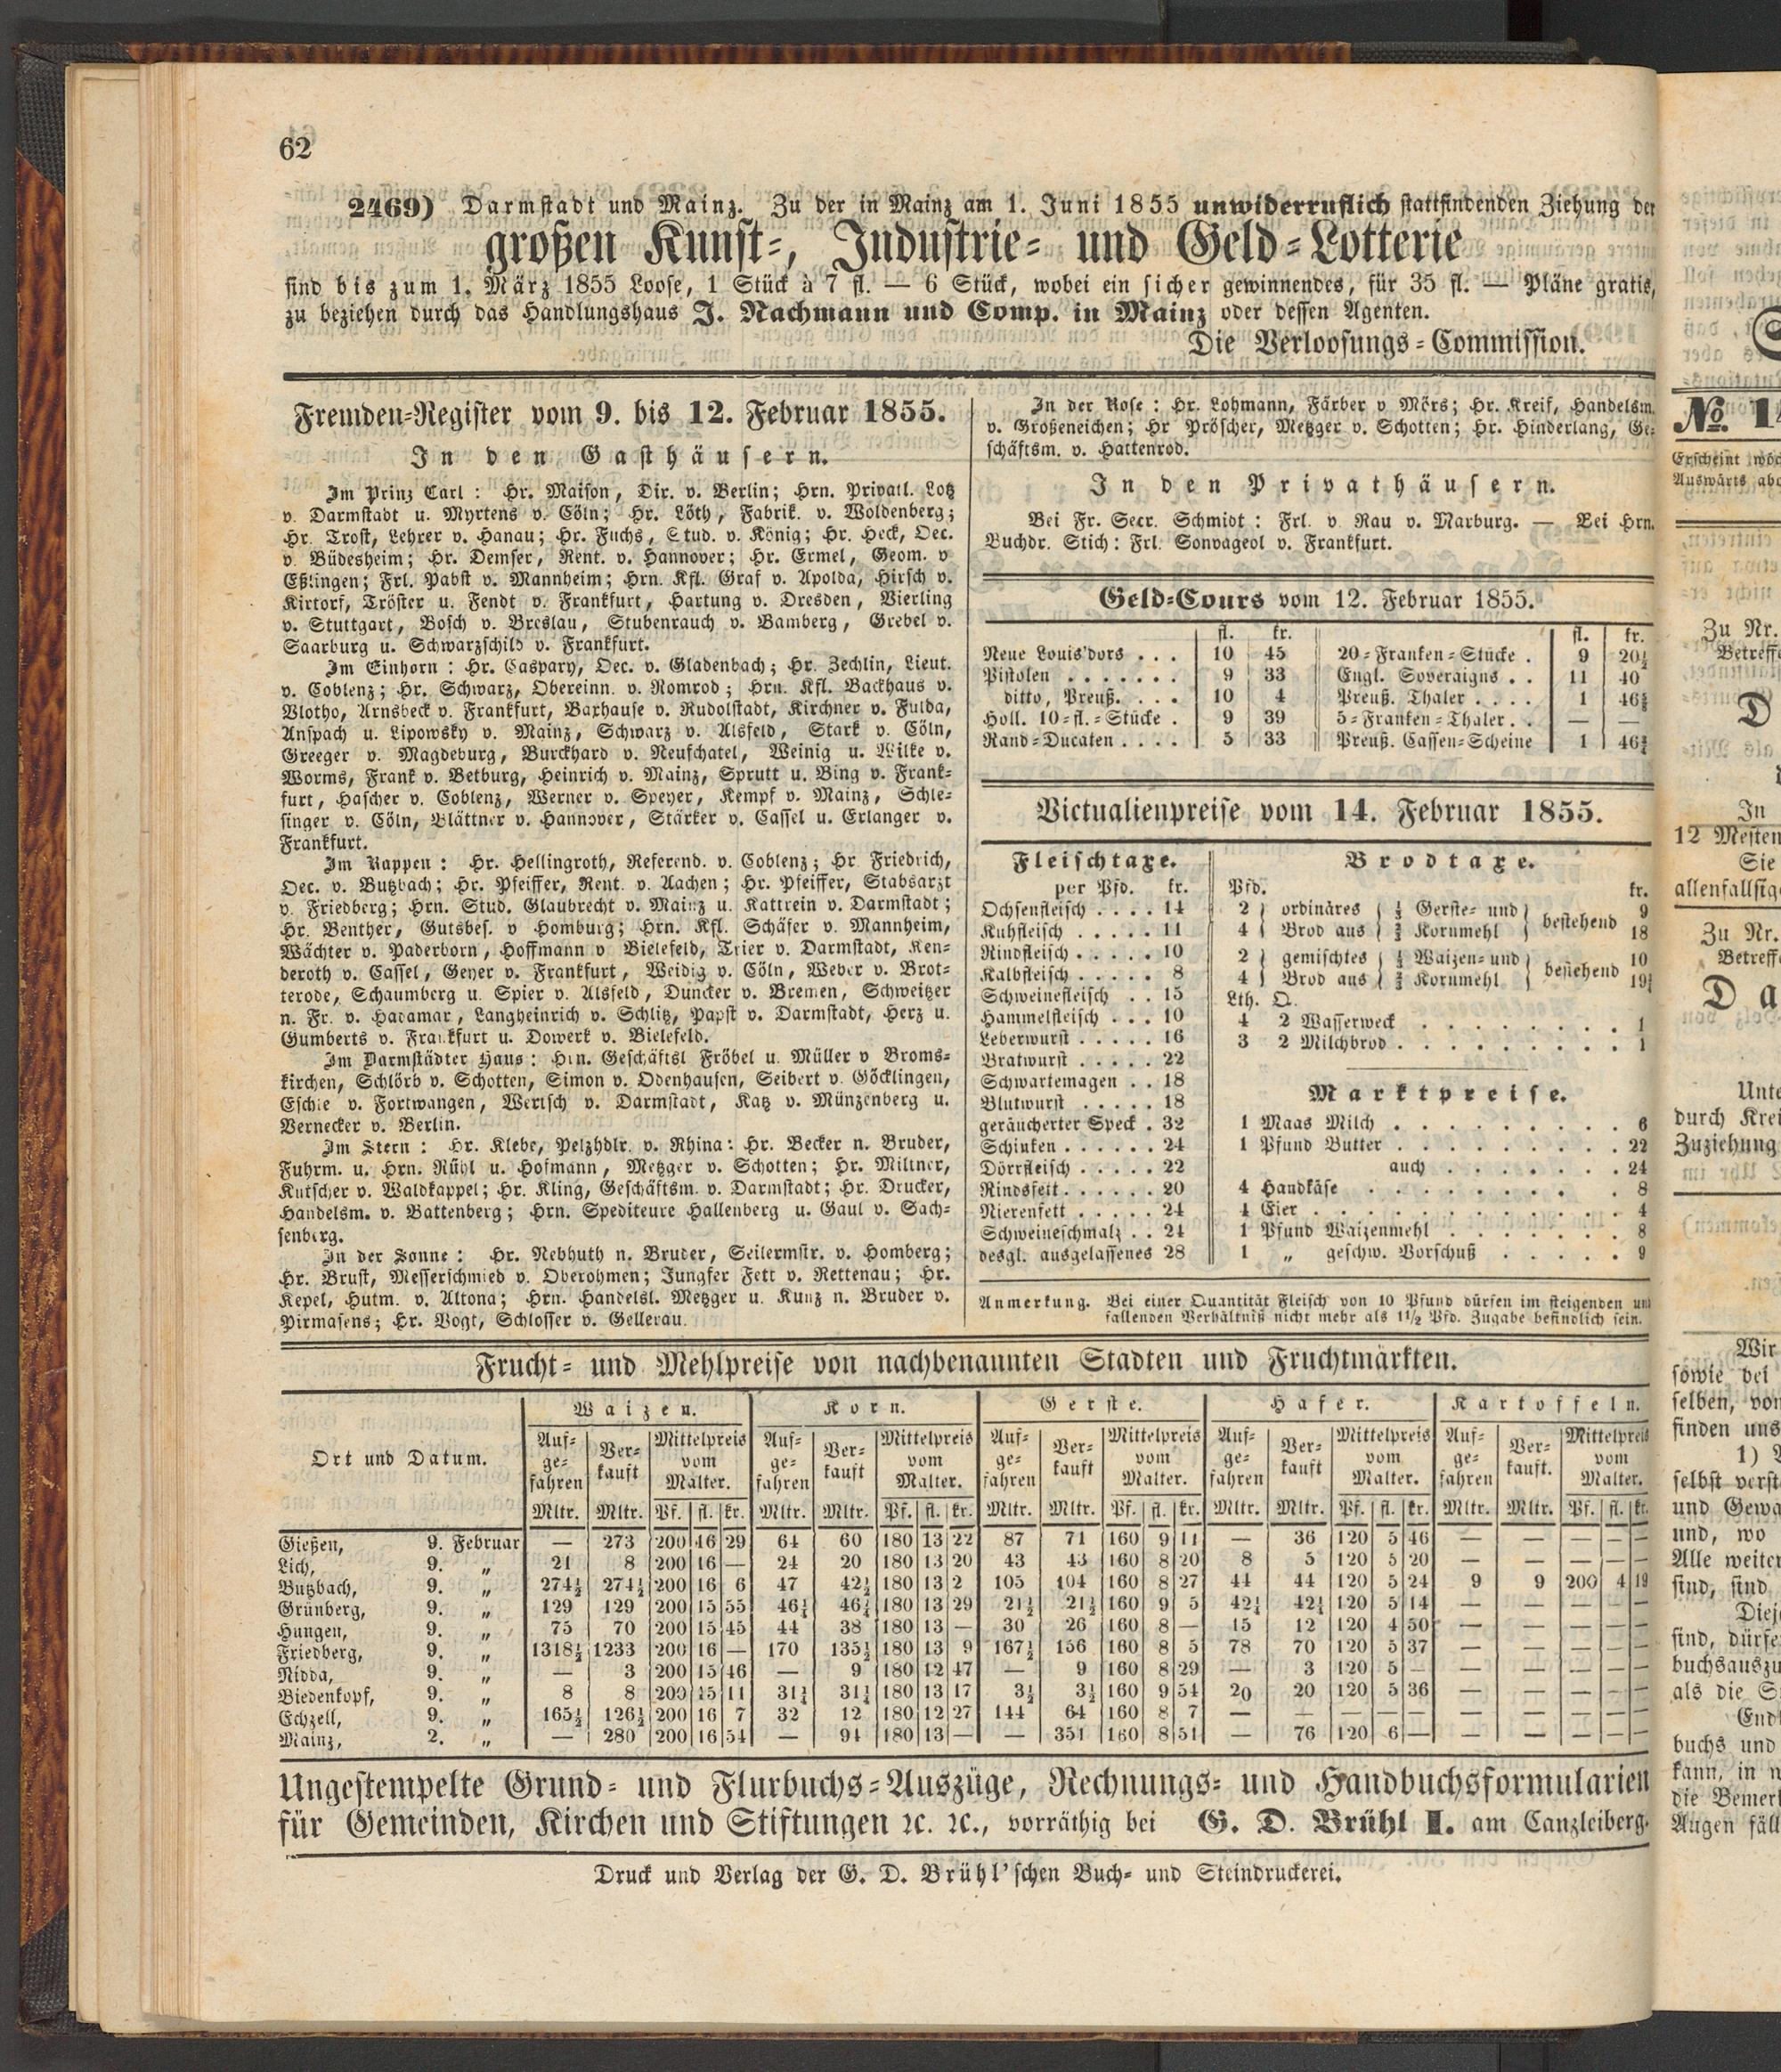 62
2469) Darmstadt und Mainz. Zu der in Mainz am 1. Juni 1855 unwiderruflich stattfindenden Ziehung der
großen Kunst-, Industrie- und Geld-Lotterie
sind bis zum 1. März 1855 Loose, 1 Stück à 7 fl. — 6 Stück, wobei ein sicher gewinnendes, für 35 fl. — Pläne gratis,
zu beziehen durch das Handlungshaus J. Nachmann und Comp. in Mainz oder dessen Agenten.
Die Verloosungs-Commission.
Fremden-Register vom 9. bis 12. Februar 1855.
In den Gasthäusern.
Im Prinz Carl: Hr. Maison, Dir. v. Berlin; Hrn. Privatl. Lotz
v. Darmstadt u. Myrtens v. Cöln; Hr. Löth, Fabrik. v. Woldenberg;
Hr. Trost, Lehrer v. Hanau; Hr. Fuchs, Stud. v. König; Hr. Heck, Oec.
v. Büdesheim; Hr. Demser, Rent. v. Hannover; Hr. Ermel, Geom. v
Eßlingen; Frl. Pabst v. Mannheim; Hrn. Kfl. Graf v. Apolda, Hirsch v.
Kirtorf, Tröster u. Fendt v. Frankfurt, Hartung v. Dresden, Vierling
v. Stuttgart, Bosch v. Breslau, Stubenrauch v. Bamberg, Grebel v.
Saarburg u. Schwarzschild v. Frankfurt.
Im Einhorn: Hr. Caspary, Oec. v. Gladenbach; Hr. Zechlin, Lieut.
v. Coblenz; Hr. Schwarz, Obereinn. v. Romrod; Hrn. Kfl. Backhaus v.
Vlotho, Arnsbeck v. Frankfurt, Barhause v. Rudolstadt, Kirchner v. Fulda,
Anspach u. Lipowsky v. Mainz, Schwarz v. Alsfeld, Stark v. Cöln,
Greeger v. Magdeburg, Burckhard v. Neufchatel, Weinig u. Wilke v.
Worms, Frank v. Betburg, Heinrich v. Mainz, Sprutt u. Bing v. Frank-
furt, Hascher v. Coblenz, Werner v. Speyer, Kempf v. Mainz, Schle-
singer v. Cöln, Blättner v. Hannover, Stärker v. Cassel u. Erlanger v.
Frankfurt.
Im Rappen: Hr. Hellingroth, Referend. v. Coblenz; Hr Friedrich,
Oec. v. Butzbach; Hr. Pfeiffer, Rent. v. Aachen; Hr. Pfeiffer, Stabsarzt
v. Friedberg; Hrn. Stud. Glaubrecht v. Mainz u. Kattrein v. Darmstadt;
Hr. Benther, Gutsbes. v Homburg; Hrn. Kfl. Schäfer v. Mannheim,
Wächter v. Paderborn, Hoffmann v Bielefeld, Trier v. Darmstadt, Ken-
deroth v. Cassel, Geyer v. Frankfurt, Weidig v. Cöln, Weber v. Brot-
terode, Schaumberg u. Spier v. Alsfeld, Duncker v. Bremen, Schweitzer
n. Fr. v. Hadamar, Langheinrich v. Schlitz, Papst v. Darmstadt, Herz u.
Gumberts v. Frankfurt u. Dowerk v. Bielefeld.
Im Darmstädter Haus: Hrn. Geschäftsl Fröbel u. Müller v Broms-
kirchen, Schlörb v. Schotten, Simon v. Odenhausen, Seibert v. Göcklingen,
Eschle v. Fortwangen, Wertsch v. Darmstadt, Katz v. Münzenberg u.
Vernecker v. Berlin.
Im Stern: Hr. Klebe, Pelzhdlr. v. Rhina: Hr. Becker n. Bruder,
Fuhrm. u. Hrn. Rühl u. Hofmann, Metzger v. Schotten; Hr. Millner,
Kutscher v. Waldkappel; Hr. Kling, Geschäftsm. v. Darmstadt; Hr. Drucker,
Handelsm. v. Battenberg; Hrn. Spediteure Hallenberg u. Gaul v. Sach-
senberg.
In der Sonne: Hr. Rebhuth n. Bruder, Seilermstr. v. Homberg;
Hr. Brust, Messerschmied v. Oberohmen; Jungfer Fett v. Rettenau; Hr.
Kepel, Hutm. v. Altona; Hrn. Handelsl. Metzger u. Kunz n. Bruder v.
Pirmasens; Hr. Vogt, Schlosser v. Gellerau.
In der Rose: Hr. Lohmann, Färber v Mörs; Hr. Kreif, Handelsm.
v. Großeneichen; Hr Pröscher, Metzger v. Schotten; Hr. Hinderlang, Ge-
schäftsm. v. Hattenrod.
In den Privathäusern.
Bei Fr. Secr. Schmidt: Frl. v. Rau v. Marburg. — Bei Hrn.
Buchdr. Stich: Frl. Sonvageol v. Frankfurt.
Geld-Cours vom 12. Februar 1855.
fl. kr. fl. kr.
Neue Louis'dors . . . 10 45 20-Franken-Stücke . 9 20½
Pistolen . . . . . . . 9 33 Engl. Soveraigns . . 11 40
ditto, Preuß. . . . 10 4 Preuß. Thaler . . . . 1 46¾
Holl. 10-fl.-Stücke . 9 39 5-Franken-Thaler . . — —
Rand-Ducaten . . . . 5 33 Preuß. Cassen-Scheine 1 46¾
Victualienpreise vom 14. Februar 1855.
Fleischtaxe.
per Pfd. kr.
Ochsenfleisch . . . . 14
Kuhfleisch . . . . . 11
Rindfleisch . . . . . 10
Kalbfleisch . . . . . 8
Schweinefleisch . . 15
Hammelfleisch . . . 10
Leberwurst . . . . . 16
Bratwurst . . . . . 22
Schwartemagen . . 18
Blutwurst . . . . . 18
geräucherter Speck . 32
Schinken . . . . . . 24
Dörrfleisch . . . . . 22
Rindsfett . . . . . . 20
Nierenfett . . . . . 24
Schweineschmalz . . 24
desgl. ausgelassenes 28
Brodtaxe.
Pfd. kr.
2 ordinäres Gerste- und bestehend 9
4 Brod aus Kornmehl 18
2 gemischtes Waizen- und bestehend 10
4 Brod aus Kornmehl 19½
Lth. Q.
4 2 Wasserweck . . . . . . . . . 1
3 2 Milchbrod . . . . . . . . . . 1
Marktpreise.
1 Maas Milch . . . . . . . . . 6
1 Pfund Butter . . . . . . . . . 22
auch . . . . . . . 24
4 Handkäse . . . . . . . . . 8
4 Eier . . . . . . . . . . . . 4
1 Pfund Waizenmehl . . . . . . . 8
1 „ geschw. Vorschuß . . . . . 9
Anmerkung. Bei einer Quantität Fleisch von 10 Pfund dürfen im steigenden und
fallenden Verhältniß nicht mehr als 1½ Pfd. Zugabe befindlich sein.
Frucht- und Mehlpreise von nachbenannten Städten und Fruchtmärkten.
Ort und Datum. Waizen. Korn. Gerste. Hafer. Kartoffeln.
Auf-ge-fahren Ver-kauft Mittelpreis vom Malter. Auf-ge-fahren Ver-kauft Mittelpreis vom Malter. Auf-ge-fahren Ver-kauft Mittelpreis vom Malter. Auf-ge-fahren Ver-kauft Mittelpreis vom Malter. Auf-ge-fahren Ver-kauft. Mittelpreis vom Malter.
Mltr. Mltr. Pf. fl. kr. Mltr. Mltr. Pf. fl. kr. Mltr. Mltr. Pf. fl. kr. Mltr. Mltr. Pf. fl. kr. Mltr. Mltr. Pf. fl. kr.
Gießen, 9. Februar — 273 200 16 29 64 60 180 13 22 87 71 160 9 11 — 36 120 5 46 — — — — —
Lich, 9. „ 21 8 200 16 — 24 20 180 13 20 43 43 160 8 20 8 5 120 5 20 — — — — —
Butzbach, 9. „ 274½ 274½ 200 16 6 47 42½ 180 13 2 105 104 160 8 27 44 44 120 5 24 9 9 200 4 19
Grünberg, 9. „ 129 129 200 15 55 46¼ 46¼ 180 13 29 21½ 21½ 160 9 5 42¼ 42¼ 120 5 14 — — — — —
Hungen, 9. „ 75 70 200 15 45 44 38 180 13 — 30 26 160 8 — 15 12 120 4 50 — — — — —
Friedberg, 9. „ 1318½ 1233 200 16 — 170 135½ 180 13 9 167½ 156 160 8 5 78 70 120 5 37 — — — — —
Nidda, 9. „ — 3 200 15 46 — 9 180 12 47 — 9 160 8 29 — 3 120 5 — — — — — —
Biedenkopf, 9. „ 8 8 200 15 11 31¼ 31¼ 180 13 17 3½ 3½ 160 9 54 20 20 120 5 36 — — — — —
Echzell, 9. „ 165½ 126½ 200 16 7 32 12 180 12 27 144 64 160 8 7 — — — — — — — — — —
Mainz, 2. „ — 280 200 16 54 — 94 180 13 — — 351 160 8 51 — 76 120 6 — — — — — —
Ungestempelte Grund- und Flurbuchs-Auszüge, Rechnungs- und Handbuchsformularien
für Gemeinden, Kirchen und Stiftungen ꝛc. ꝛc., vorräthig bei G. D. Brühl I. am Canzleiberg.
Druck und Verlag der G. D. Brühl'schen Buch- und Steindruckerei.